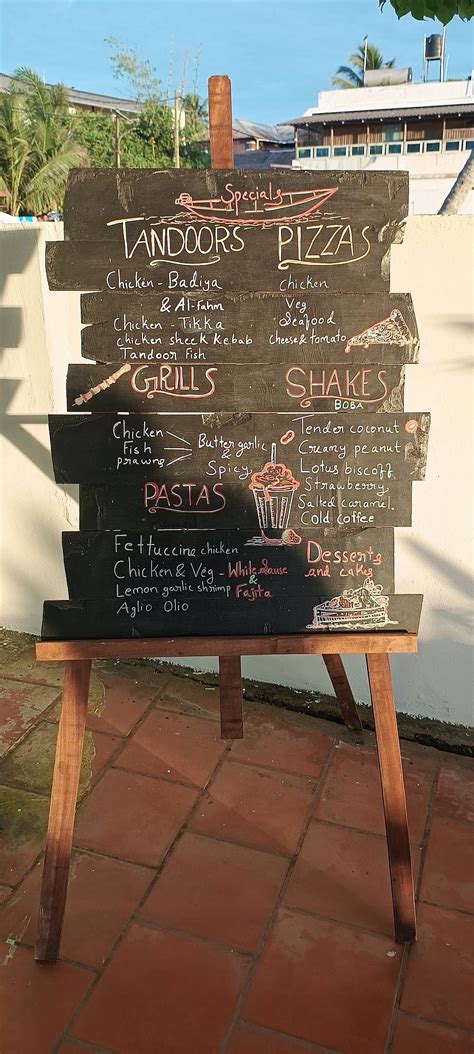 Specials
TANDOORS
Chicken - Badiya
& Al-fahm
Chicken - Tikka
chicken sheek kebab
Tandoor Fish
PIZZAS
chicken
Veg
Seafood
cheese & tomato
GRILLS
Chicken
Fish
prawns
Butter garlic
&
Spicy
SHAKES
BOBA
Tender coconut
Creamy peanut
Lotus biscoff
Strawberry
Salted caramel
Cold coffee
PASTAS
Fettuccine chicken
Chicken & Veg - White Sause
&
Lemon garlic shrimp Fajita
Aglio Olio
Desserts
and cakes